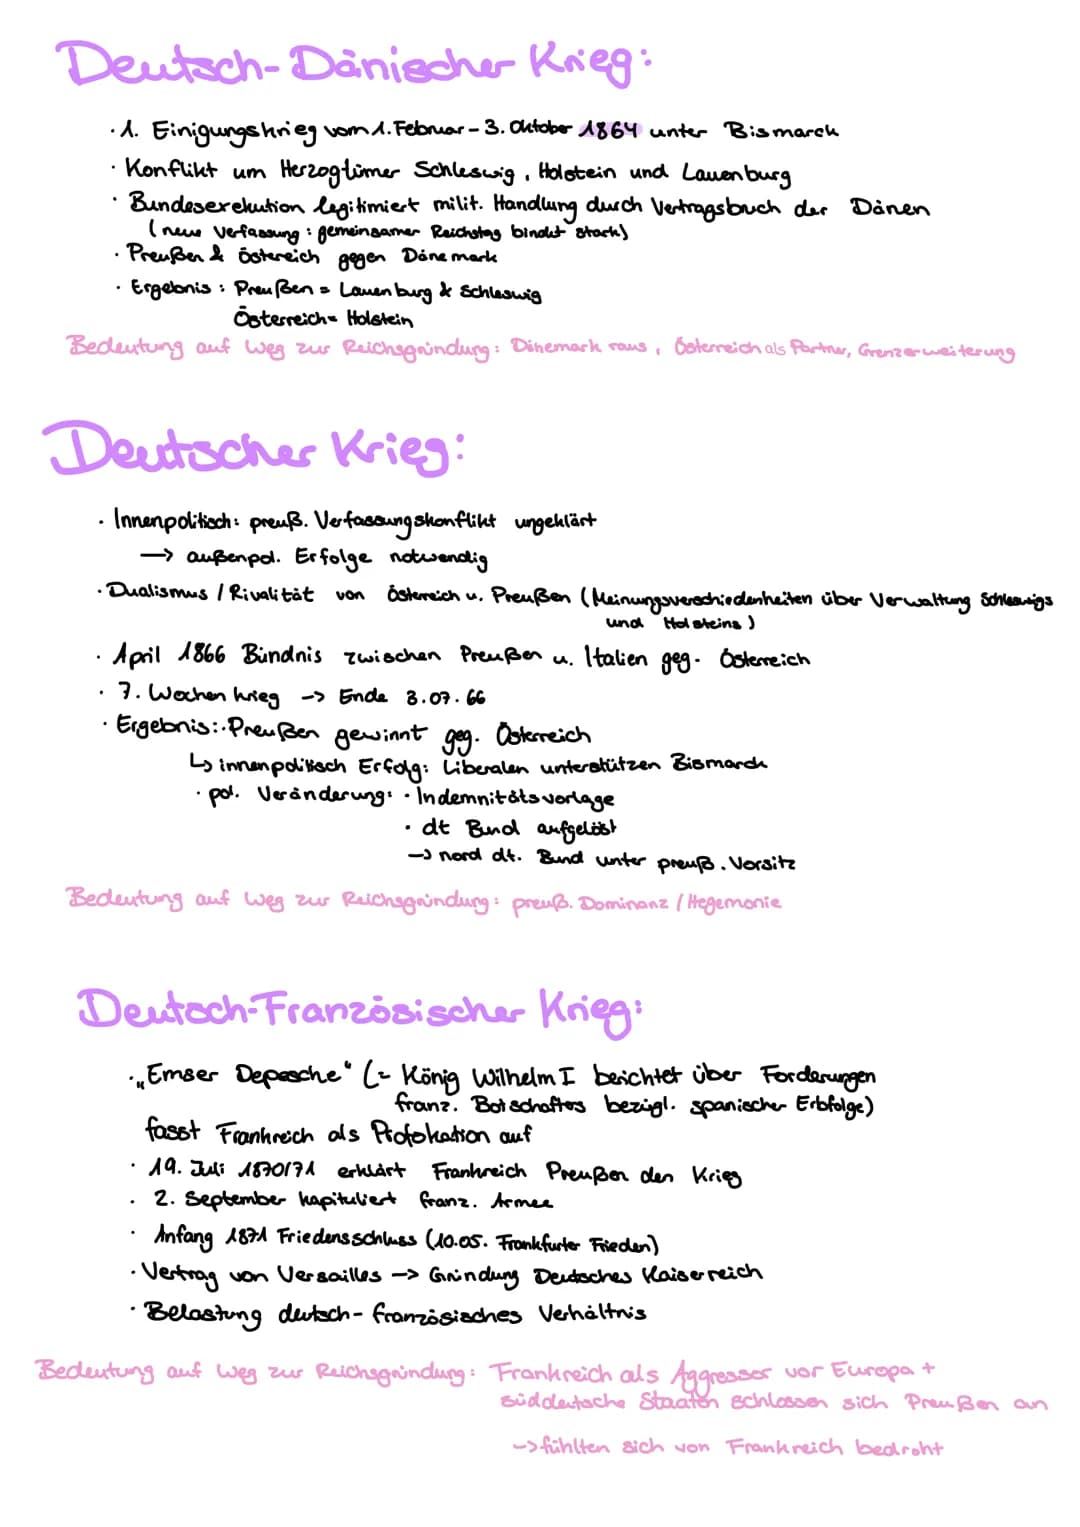 Deutsch-Dänischer Krieg:
· 1. Einigungskrieg vom 1. Februar - 3. Oktober 1864 unter Bismarck
· Konflikt um Herzogtümer Schleswig, Holstein und Lauenburg
· Bundesexekution legitimiert milit. Handlung durch Vertragsbuch der Dänen
(neue Verfassung: gemeinsamer Reichstag bindet stark)
· Preußen & Östereich gegen Dänemark
· Ergebnis: Preußen = Lauenburg & Schleswig
Österreich= Holstein
Bedeutung auf Weg zur Reichsgründung: Dänemark raus, Österreich als Partner, Grenzerweiterung
Deutscher Krieg:
· Innenpolitisch: preuß. Verfassungskonflikt ungeklärt
→ außenpol. Erfolge notwendig
· Dualismus / Rivalität von Österreich u. Preußen (Meinungsverschiedenheiten über Verwaltung Schleswigs
und Holsteins)
· April 1866 Bündnis zwischen Preußen u. Italien geg. Österreich
· 7. Wochenkrieg -> Ende 3.07.66
· Ergebnis: · Preußen gewinnt geg. Österreich
↳ innenpolitisch Erfolg: Liberalen unterstützen Bismarck
· pol. Veränderung: · Indemnitätsvorlage
· dt Bund aufgelöst
-> nord dt. Bund unter preuß. Vorsitz
Bedeutung auf Weg zur Reichsgründung: preuß. Dominanz / Hegemonie
Deutsch-Französischer Krieg:
· „Emser Depesche" (= König Wilhelm I berichtet über Forderungen
franz. Botschafters bezügl. spanischer Erbfolge)
fasst Frankreich als Profokation auf
· 19. Juli 1870/71 erklärt Frankreich Preußen den Krieg
· 2. September kapituliert franz. Armee
· Anfang 1871 Friedensschluss (10.05. Frankfurter Frieden)
· Vertrag von Versailles -> Gründung Deutsches Kaiserreich
· Belastung deutsch-französisches Verhältnis
Bedeutung auf Weg zur Reichsgründung: Frankreich als Aggressor vor Europa +
süddeutsche Staaten schlossen sich Preußen an
-> fühlten sich von Frankreich bedroht